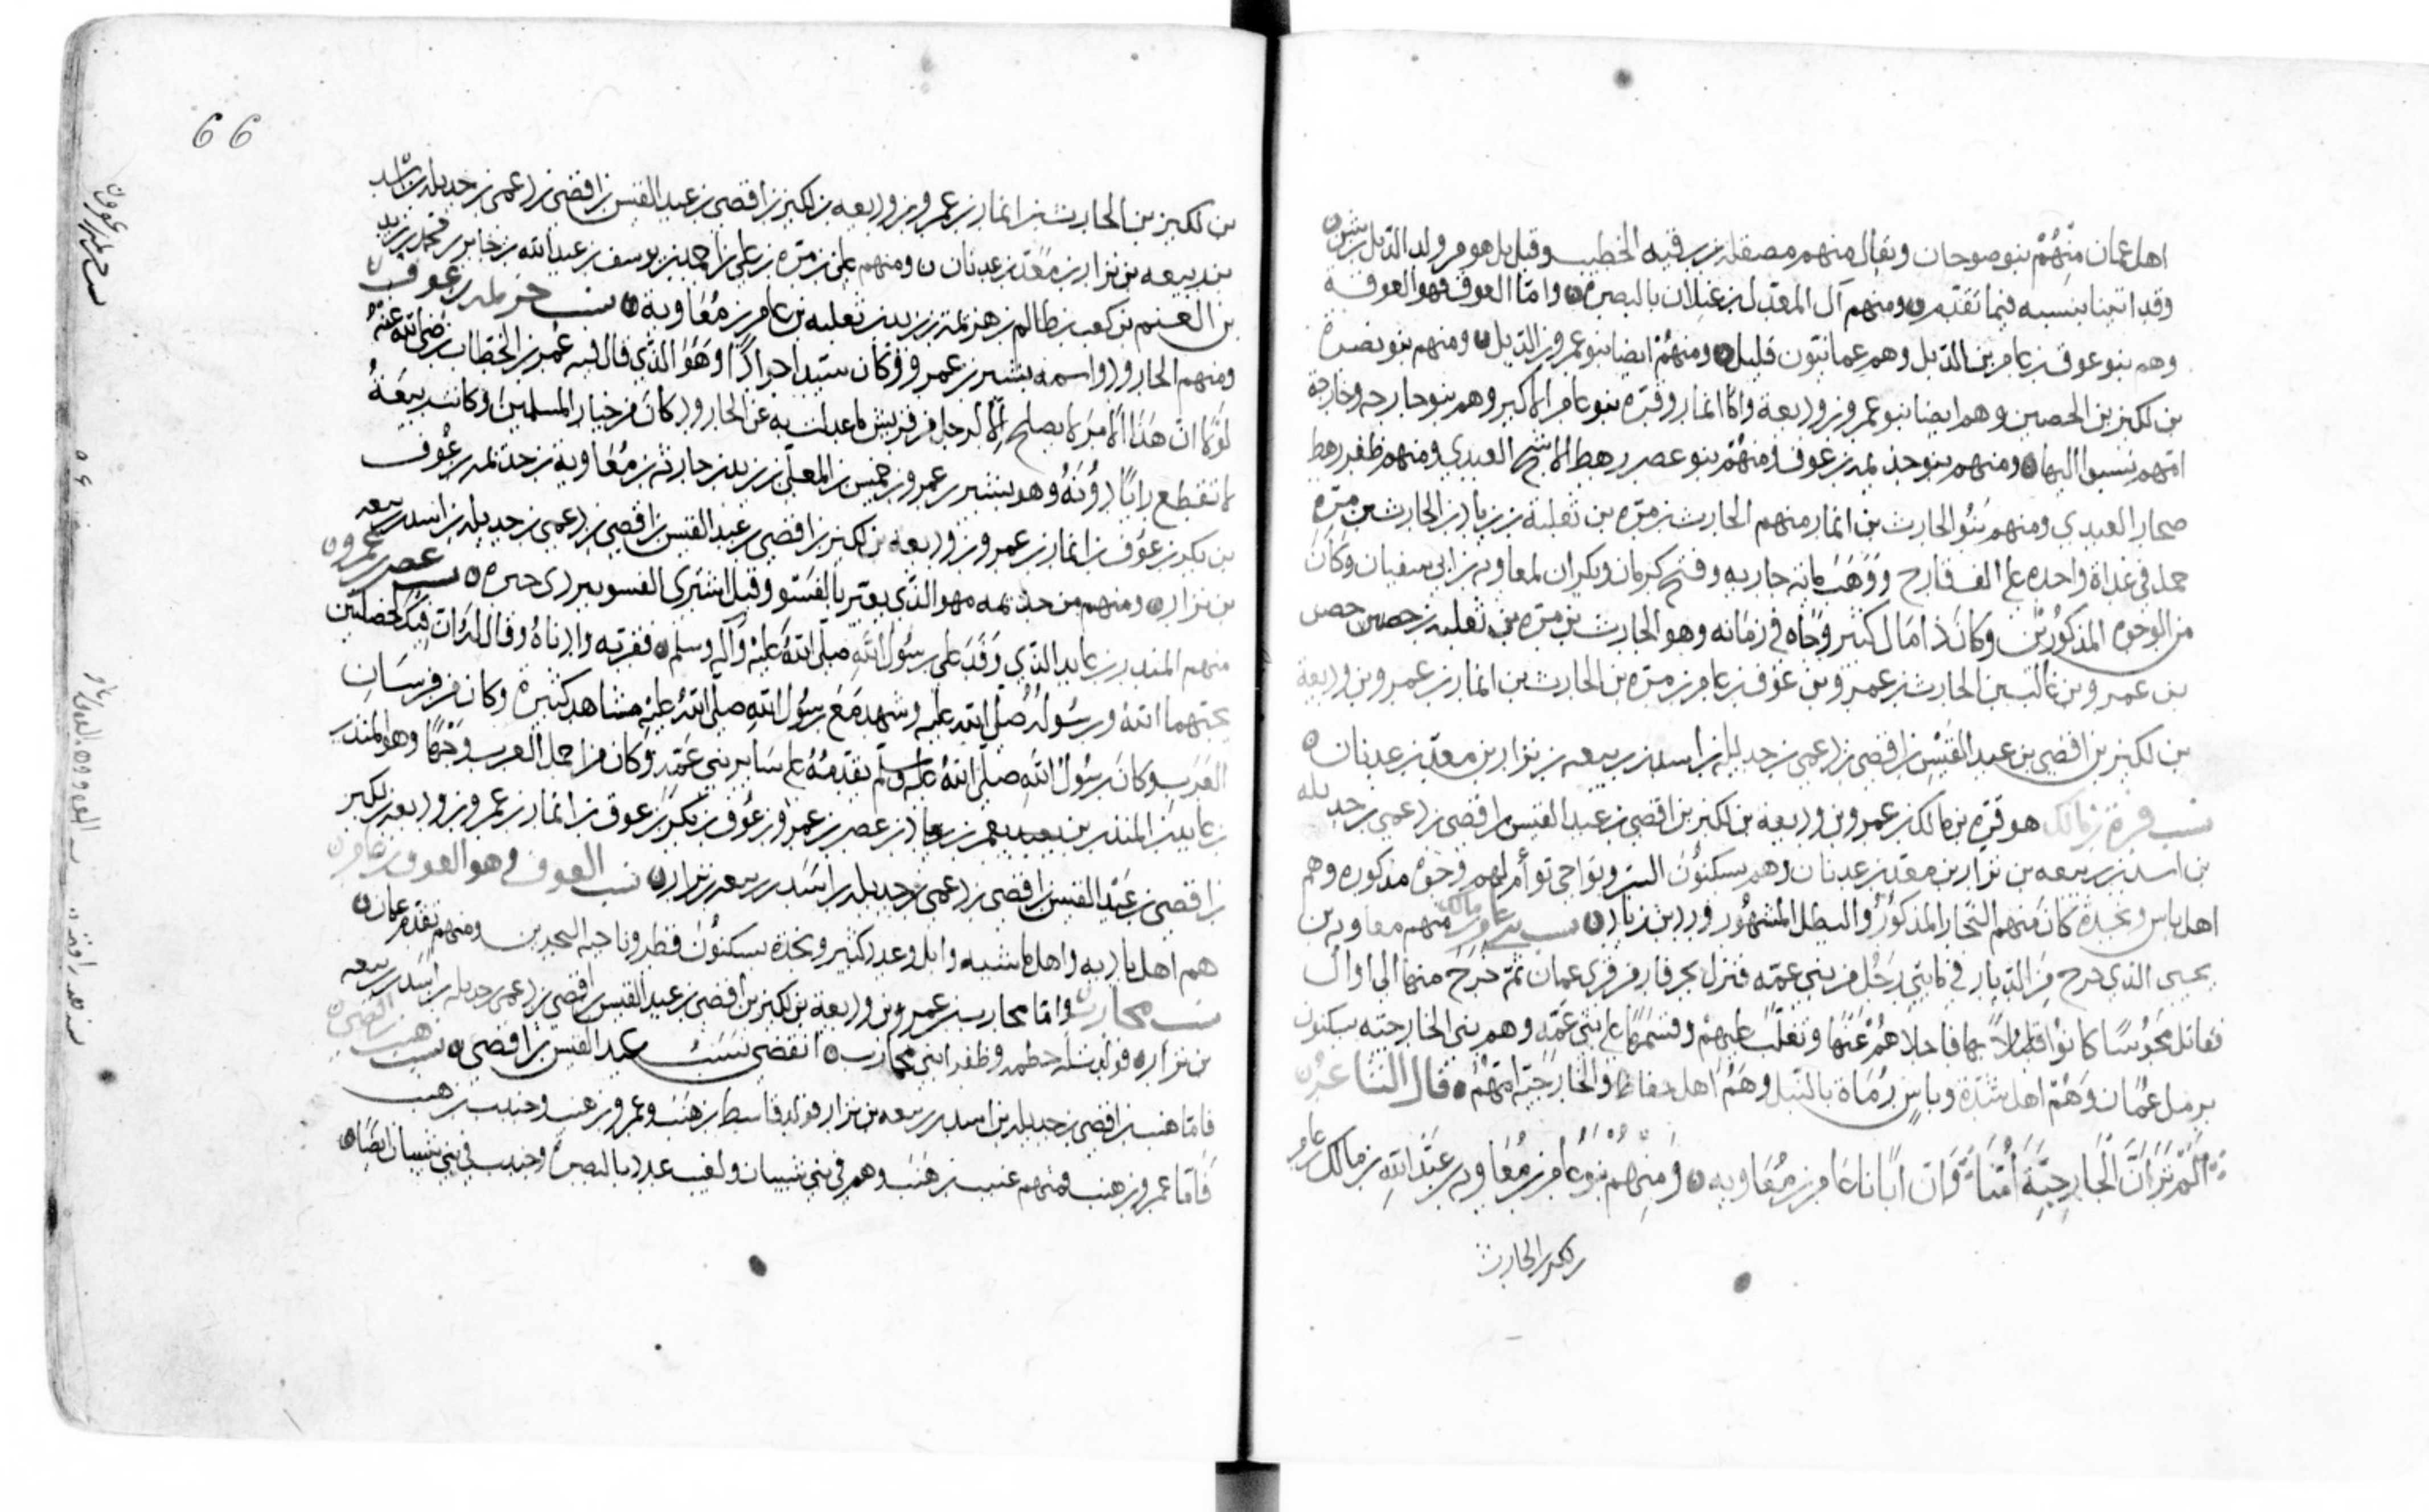 اهل عمان منهم بنو صوحان ويقال منهم مصقلة بن رقبه الخطيب وقيل بل هو من ولد الديل بن شن
وقد اتينا بنسبه فيما تقدم ومنهم آل المعذل بن غيلان بالبصرة واما العوق فهو العوقة
وهم بنو عوق بن عامر بن الديل وهم عمانيون قليل ومنهم ايضا بنو عمرو بن الديل ومنهم بنو نضرة
بن لكيز بن الحصين وهم ايضا بنو عمرو بن وديعة واما انمار وقرة بنو عامر الاكبر وهم بنو حارجه وخارجة
امهم نسبوا اليها ومنهم بنو جذيمه بن عوف ومنهم بنو عصر رهط الاشج العبدي ومنهم ظفر رهط
صحار العبدي ومنهم بنو الحارث بن انمار منهم الحارث بن مرة بن ثعلبة بن زياد بن الحارث بن مرة
حمل في غداة واحدة على الف قارح ووهب ماية جاريه وفتح كرمان ومكران لمعاوية بن ابي سفيان وكان
من الوجوه المذكورين وكان ذا مال كثير وجاه في زمانه وهو الحارث بن مرة بن ثعلبه بن حصين
بن عمرو بن غالب بن الحارث بن عمرو بن عوف بن عامر بن مرة بن الحارث بن انمار بن عمرو بن وديعة
بن لكيز بن افصى بن عبد القيس بن افصى بن دعمي بن جديلة بن اسد بن ربيعه بن نزار بن معد بن عدنان
نسب قرة بن مالك هو قرة بن مالك بن عمرو بن وديعه بن لكيز بن افصى بن عبد القيس بن افصى بن دعمي بن جديله
بن اسد بن ربيعه بن نزار بن معد بن عدنان وهم يسكنون السر ونواحي توأم لهم وجوه مذكوره وهم
اهل باس ونجدة كان منهم النجار المذكور والبطل المشهور ورد بن زياد نسب بني عامر بن مالك منهم معاويه بن
يحيى الذي خرج من الديار في مايتي رجل من بني عمه فنزل بجرفار من قرى عمان ثم خرج منها الى اوال
فقاتل مجوسا كانوا بها فاجلاهم عنها وتغلب عليهم وقسمها على بني عمه وهم بني الخارجيه يسكنون
برمل عمان وهم اهل شدة وباس رماة بالنبل وهم اهل حفاظ والخارجية امهم قال الشاعر
الم تر ان الخارجية امنا وان ابانا عامر بن معاويه ومنهم بنو عامر بن معاويه بن عبد الله بن مالك بن عامر
الحارث
66
بن لكيز بن الحارث بن انمار بن عمرو بن وديعه بن لكيز بن افصى بن عبد القيس بن افصى بن دعمي بن جديله بن اسد
بن ربيعه بن نزار بن معد بن عدنان ومنهم علي بن مرة بن علي بن احمد بن يوسف بن عبد الله بن جابر بن محمد بن زيد
بن الغنم بن كعب بن ظالم بن هزيمة بن زيد بن ثعلبه بن عامر بن معاوية نسب جذيمه بن عوف
ومنهم الجارود واسمه بشر بن عمرو وكان سيدا جوادا وهو الذي قال فيه عمر بن الخطاب رضي الله عنه
لولا ان هذا الامر لا يصلح الا لرجل من قريش ما عدلت به عن الجارود كان من خيار المسلمين وكانت ربيعة
لا تقطع رايا دونه وهو بشر بن عمرو بن حبيش بن المعلى بن زيد بن حارثه بن معاوية بن جذيمه بن عوف
بن بكر بن عوف بن انمار بن عمرو بن وديعه بن لكيز بن افصى بن عبد القيس بن افصى بن دعمي بن جديله بن اسد بن ربيعه
بن نزار ومنهم من جذيمه مهو الذي يعير بالفسو وقيل اشترى الفسو ببردى حبره نسب عصر بن عمرو
منهم المنذر بن عايد الذي وفد على رسول الله صلى الله عليه وآله وسلم فقربه وادناه وقال له ان فيك خصلتين
يحبهما الله ورسوله صلى الله عليه وشهد مع رسول الله صلى الله عليه مشاهد كثيرة وكان من فرسان
العرب وكان رسول الله صلى الله عليه وسلم يقدمه على ساير بني عمه وكان من اجمل العرب وجها وهو المنذر
بن عايد بن المنذر بن يعمر بن زياد بن عصر بن عمرو بن عوف بن بكر بن عوف بن انمار بن عمرو بن وديعه بن لكيز
بن افصى بن عبد القيس بن افصى بن دعمي بن جديله بن اسد بن ربيعه بن نزار نسب العوق وهو العوق بن عامر
هم اهل باديه واهل ماشيه وابل وعدد كثير ونجدة يسكنون قطر وناحيه البحرين ومنهم تقدم عمان
نسب محارب واما محارب بن عمرو بن وديعة بن لكيز بن افصى بن عبد القيس بن افصى بن دعمي بن جديله بن اسد بن ربيعه
بن نزار فولد حطمه وظفر ابني محارب انقضى نسب عبد القيس بن افصى نسب هنب بن افصى
فاما هنب بن افصى بن جديله بن اسد بن ربيعه بن نزار فولد قاسط بن هنب وعمرو بن هنب وجندب بن هنب
فاما عمرو بن هنب فمنهم عنيب بن هنب وهم في بني شيبان ولعنيب عدد بالبصرة وجندب في بني شيبان ايضا